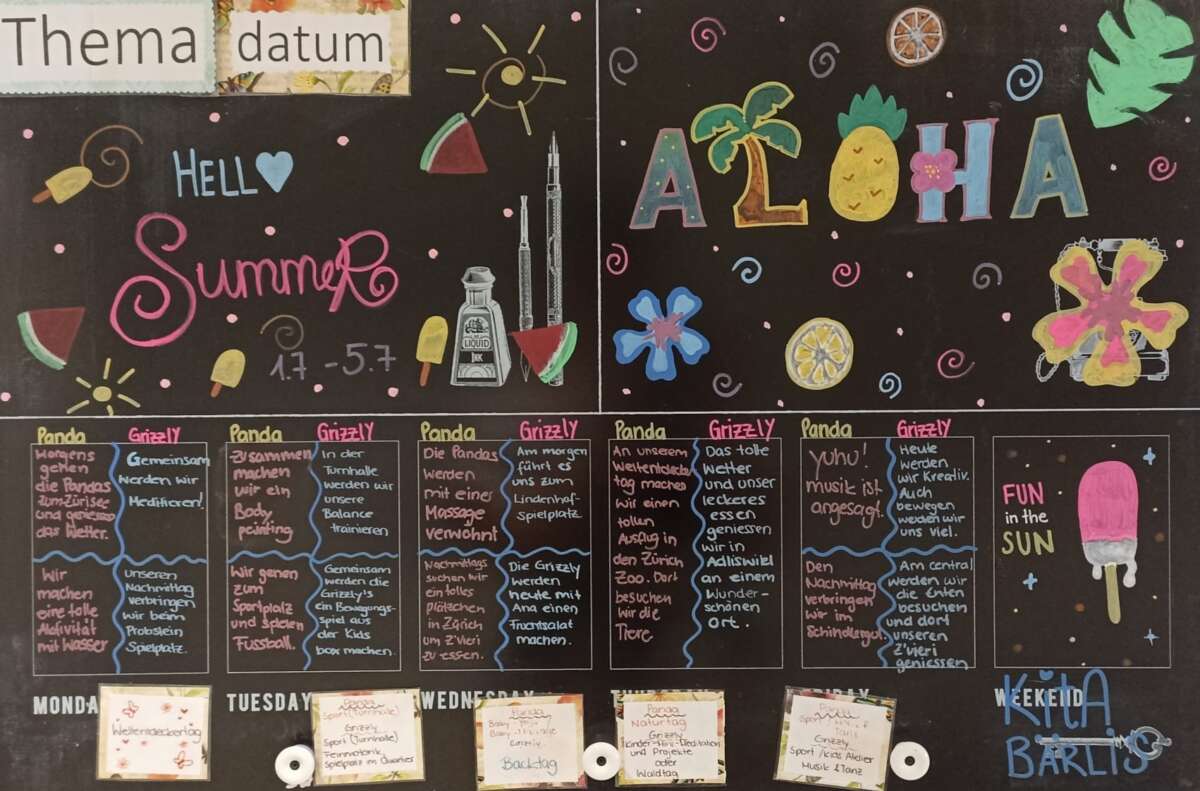 Thema
datum
HELL
SummeR
1.7 - 5.7
LIQUID
INK
ALOHA
Panda
Morgens
gehen
die Pandas
zum Zürisee
und geniessen
das Wetter.
Wir
machen
eine tolle
Aktivität
mit Wasser
Grizzly
Gemeinsam
werden wir
Meditieren!
unseren
Nachmittag
verbringen
wir beim
Probstein
Spielplatz.
Panda
Zusammen
machen
wir ein
Body
painting
Wir gehen
zum
Sportplatz
und spielen
Fussball.
Grizzly
In der
Turnhalle
werden wir
unsere
Balance
trainieren
Gemeinsam
werden die
Grizzly's
ein Bewegungs-
Spiel aus
der Kids
box machen.
Panda
Die Pandas
werden
mit einer
Massage
verwöhnt
Nachmittags
suchen wir
ein tolles
plätzchen
in Zürich
um Z'vieri
zu essen.
Grizzly
Am morgen
führt es
uns zum
Lindenhof-
Spielplatz.
Die Grizzly
werden
heute mit
Ana einen
Fruchtsalat
machen.
Panda
An unserem
Weltentdecker
tag machen
wir einen
tollen
Ausflug in
den Zürich
Zoo. Dort
besuchen
wir die
Tiere
Grizzly
Das tolle
Wetter
und unser
leckeres
essen
geniessen
wir in
Adliswil
an einem
Wunder-
schönen
Ort.
Panda
Yuhu!
musik ist
angesagt.
Den
Nachmittag
verbringen
wir im
Schindlergut.
Grizzly
Heute
werden
wir Kreativ.
Auch
bewegen
werden wir
uns viel.
Am central
werden wir
die Enten
besuchen
und dort
unseren
Z'vieri
geniessen
FUN
in the
SUN
MONDA
Weltentdeckertag
TUESDAY
Sport (Turnhalle)
Grizzly
Sport (Turnhalle)
Feinmotorik
Spielplatz im Quartier
WEDNESDAY
Panda
Grizzly
Backtag
Panda
Naturtag
Grizzly
Kinder-Yoga-Meditation
und Projekte
oder
Waldtag
Grizzly
Sport /Kids Atelier
Musik & Tanz
WEEKEND
KiTA
BÄRLIS